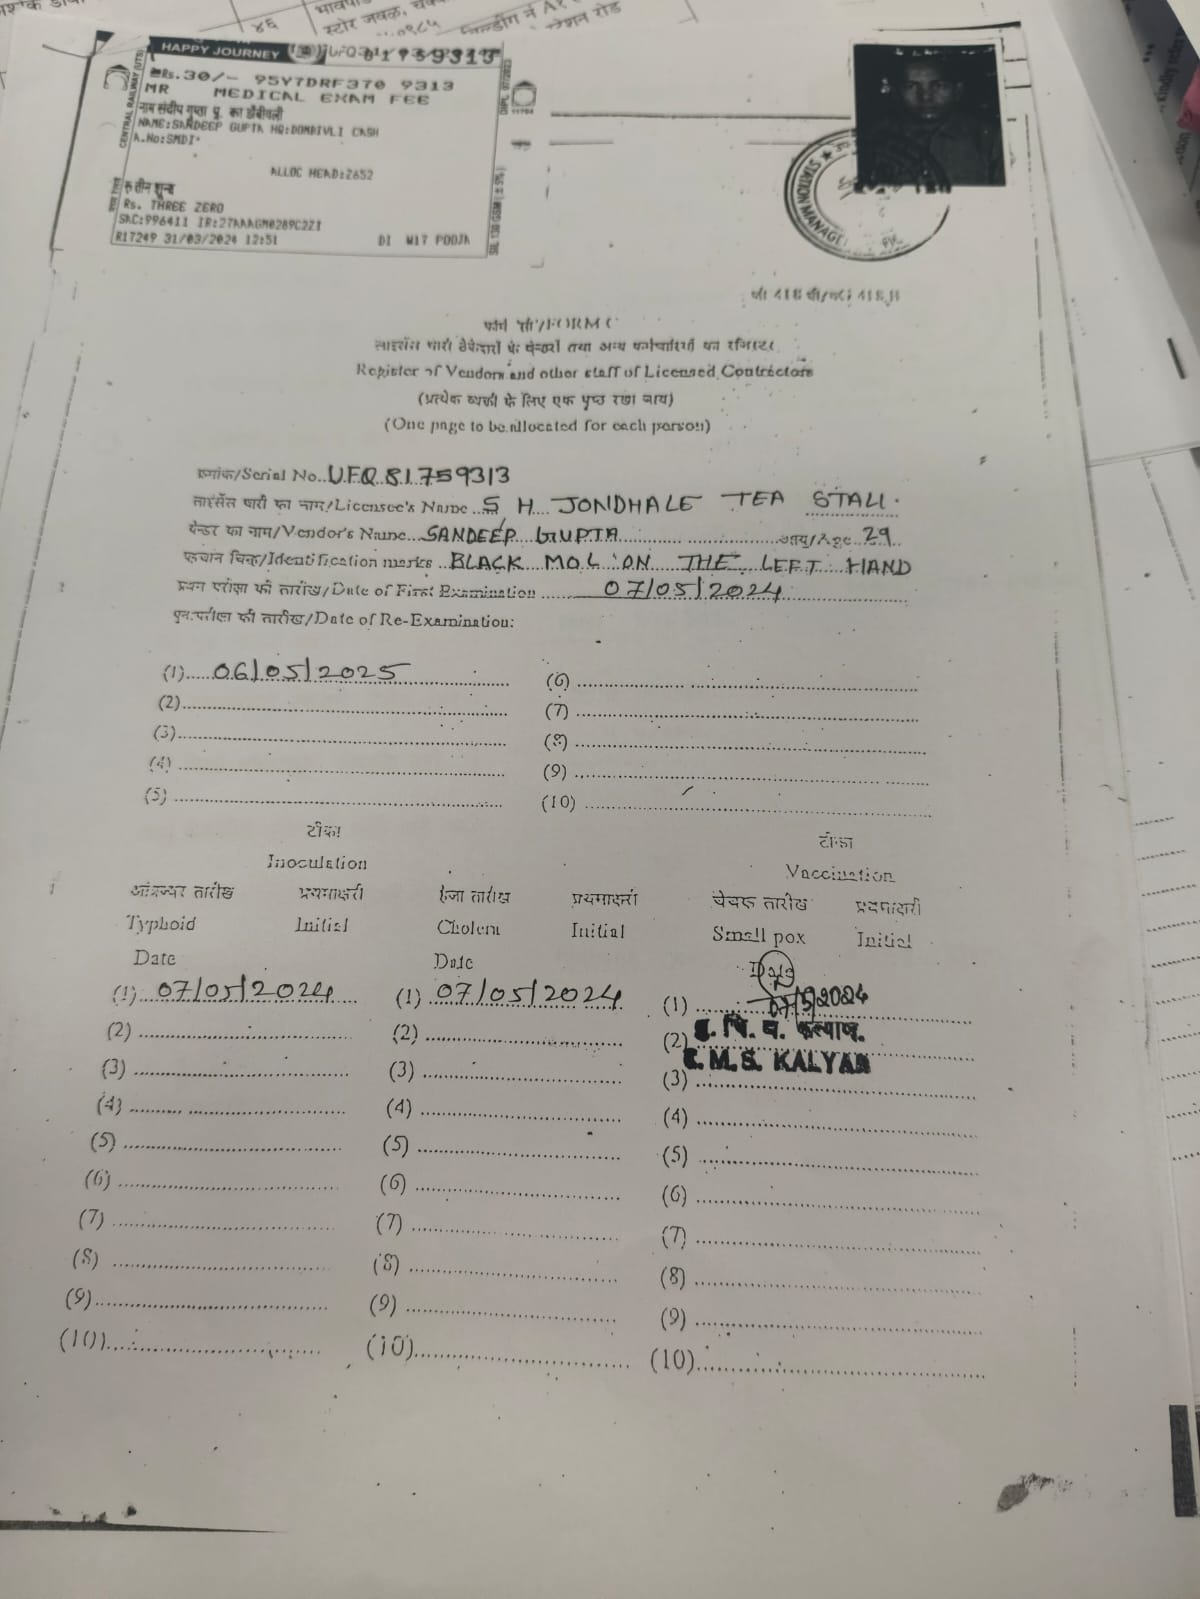 ४६
स्टोर जवळ,
स्टेशन रोड
HAPPY JOURNEY UFQ 81759313
CENTRAL RAILWAY (UTS)
Rs.30/- 95Y7DRF370 9313
MR MEDICAL EXAM FEE
नाम संदीप गुप्ता पु. का डोंबीवली
NAME:SANDEEP GUPTA HQ:DOMBIVLI CASH
A.No:SMDI
ALLOC HEAD:Z652
रु तीन शून्य
Rs. THREE ZERO
SAC:996411 IR:27AAAGM0289C2ZI
R17249 31/03/2024 12:51 DI W17 POOJA
STATION MANAGER
जी 418 बी/G 418 B
फॉर्म 'सी'/FORM C
लाइसेंस धारी ठेकेदारों के वेन्डरों तथा अन्य कर्मचारियों का रजिस्टर
Register of Vendors and other staff of Licensed Contractors
(प्रत्येक व्यक्ती के लिए एक पृष्ठ रखा जाय)
(One page to be allocated for each person)
क्रमांक/Serial No. UFQ 81759313
लाइसेंस धारी का नाम/Licensee's Name S H JONDHALE TEA STALL.
वेन्डर का नाम/Vendor's Name SANDEEP GUPTA आयु/Age 29
पहचान चिन्ह/Identification marks BLACK MOL ON THE LEFT HAND
प्रथम परीक्षा की तारीख/Date of First Examination 07/05/2024
पुन:परीक्षा की तारीख/Date of Re-Examination:
(1) 06/05/2025 (6)
(2) (7)
(3) (8)
(4) (9)
(5) (10)
टीका टीका
Inoculation Vaccination
आंत्रज्वर तारीख प्रथमाक्षरी हैजा तारीख प्रथमाक्षरी चेचक तारीख प्रथमाक्षरी
Typhoid Initial Cholera Initial Small pox Initial
Date Date Date
(1) 07/05/2024 (1) 07/05/2024 (1) 07/5/2024
(2) (2) (2) कल्याण.
(3) (3) (3) KALYAN
(4) (4) (4)
(5) (5) (5)
(6) (6) (6)
(7) (7) (7)
(8) (8) (8)
(9) (9) (9)
(10) (10) (10)